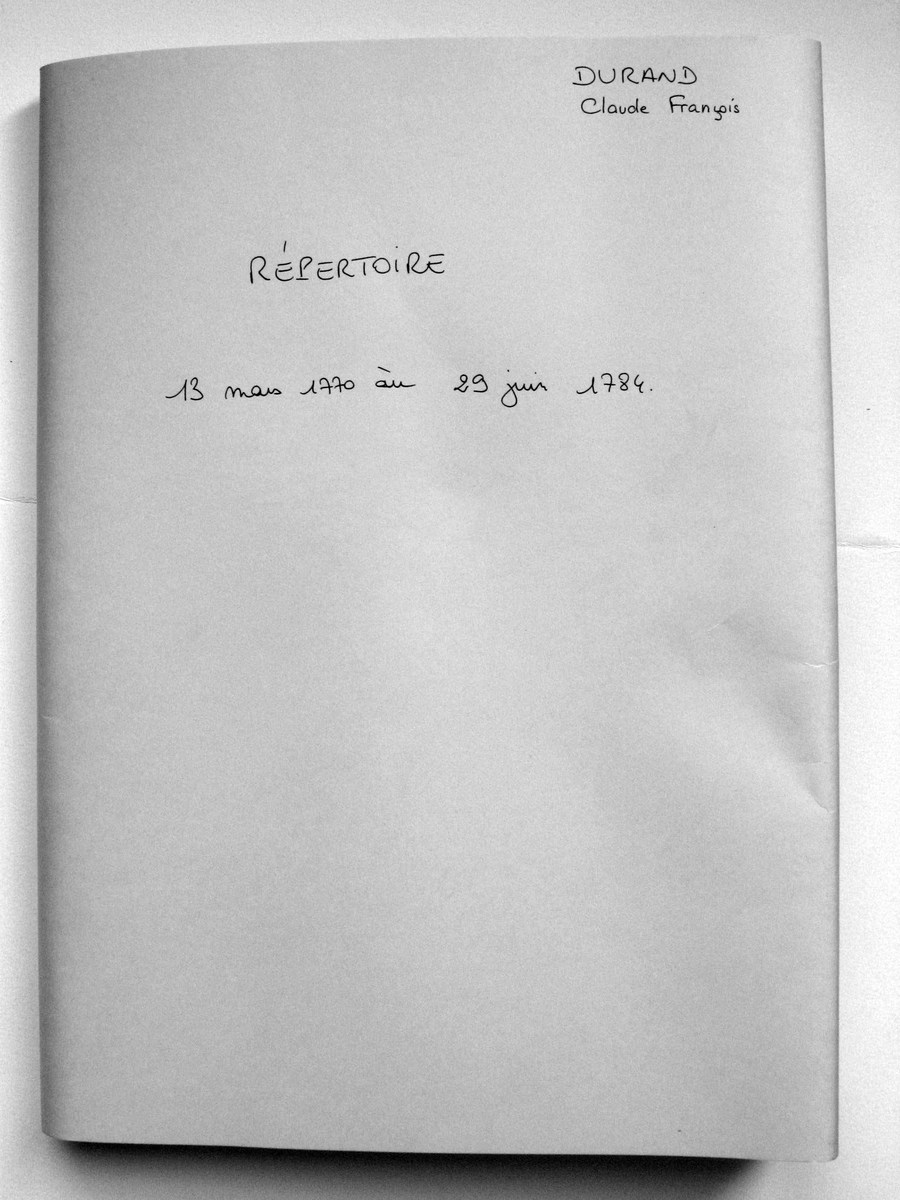 DURAND
Claude François
RÉPERTOIRE
13 mars 1770 àu 29 juin 1784.